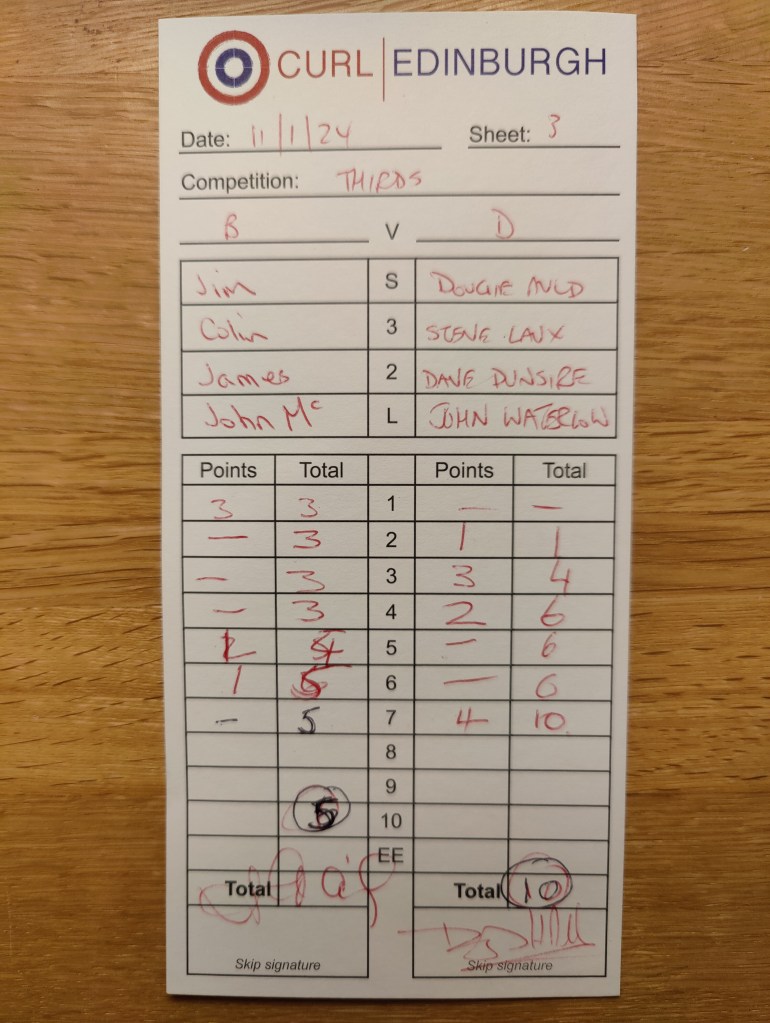 CURL | EDINBURGH
Date: 11/1/24 Sheet: 3
Competition: THIRDS
B V D
Jim S DOUGIE AULD
Colin 3 STEVE LAUX
James 2 DAVE DUNSIRE
John Mc L JOHN WATERLOW
Points Total Points Total
3 3 1 — —
— 3 2 1 1
— 3 3 3 4
— 3 4 2 6
1 4 5 — 6
1 5 6 — 6
- 5 7 4 10
8
9
5 10
EE
Total Total 10
Skip signature Skip signature